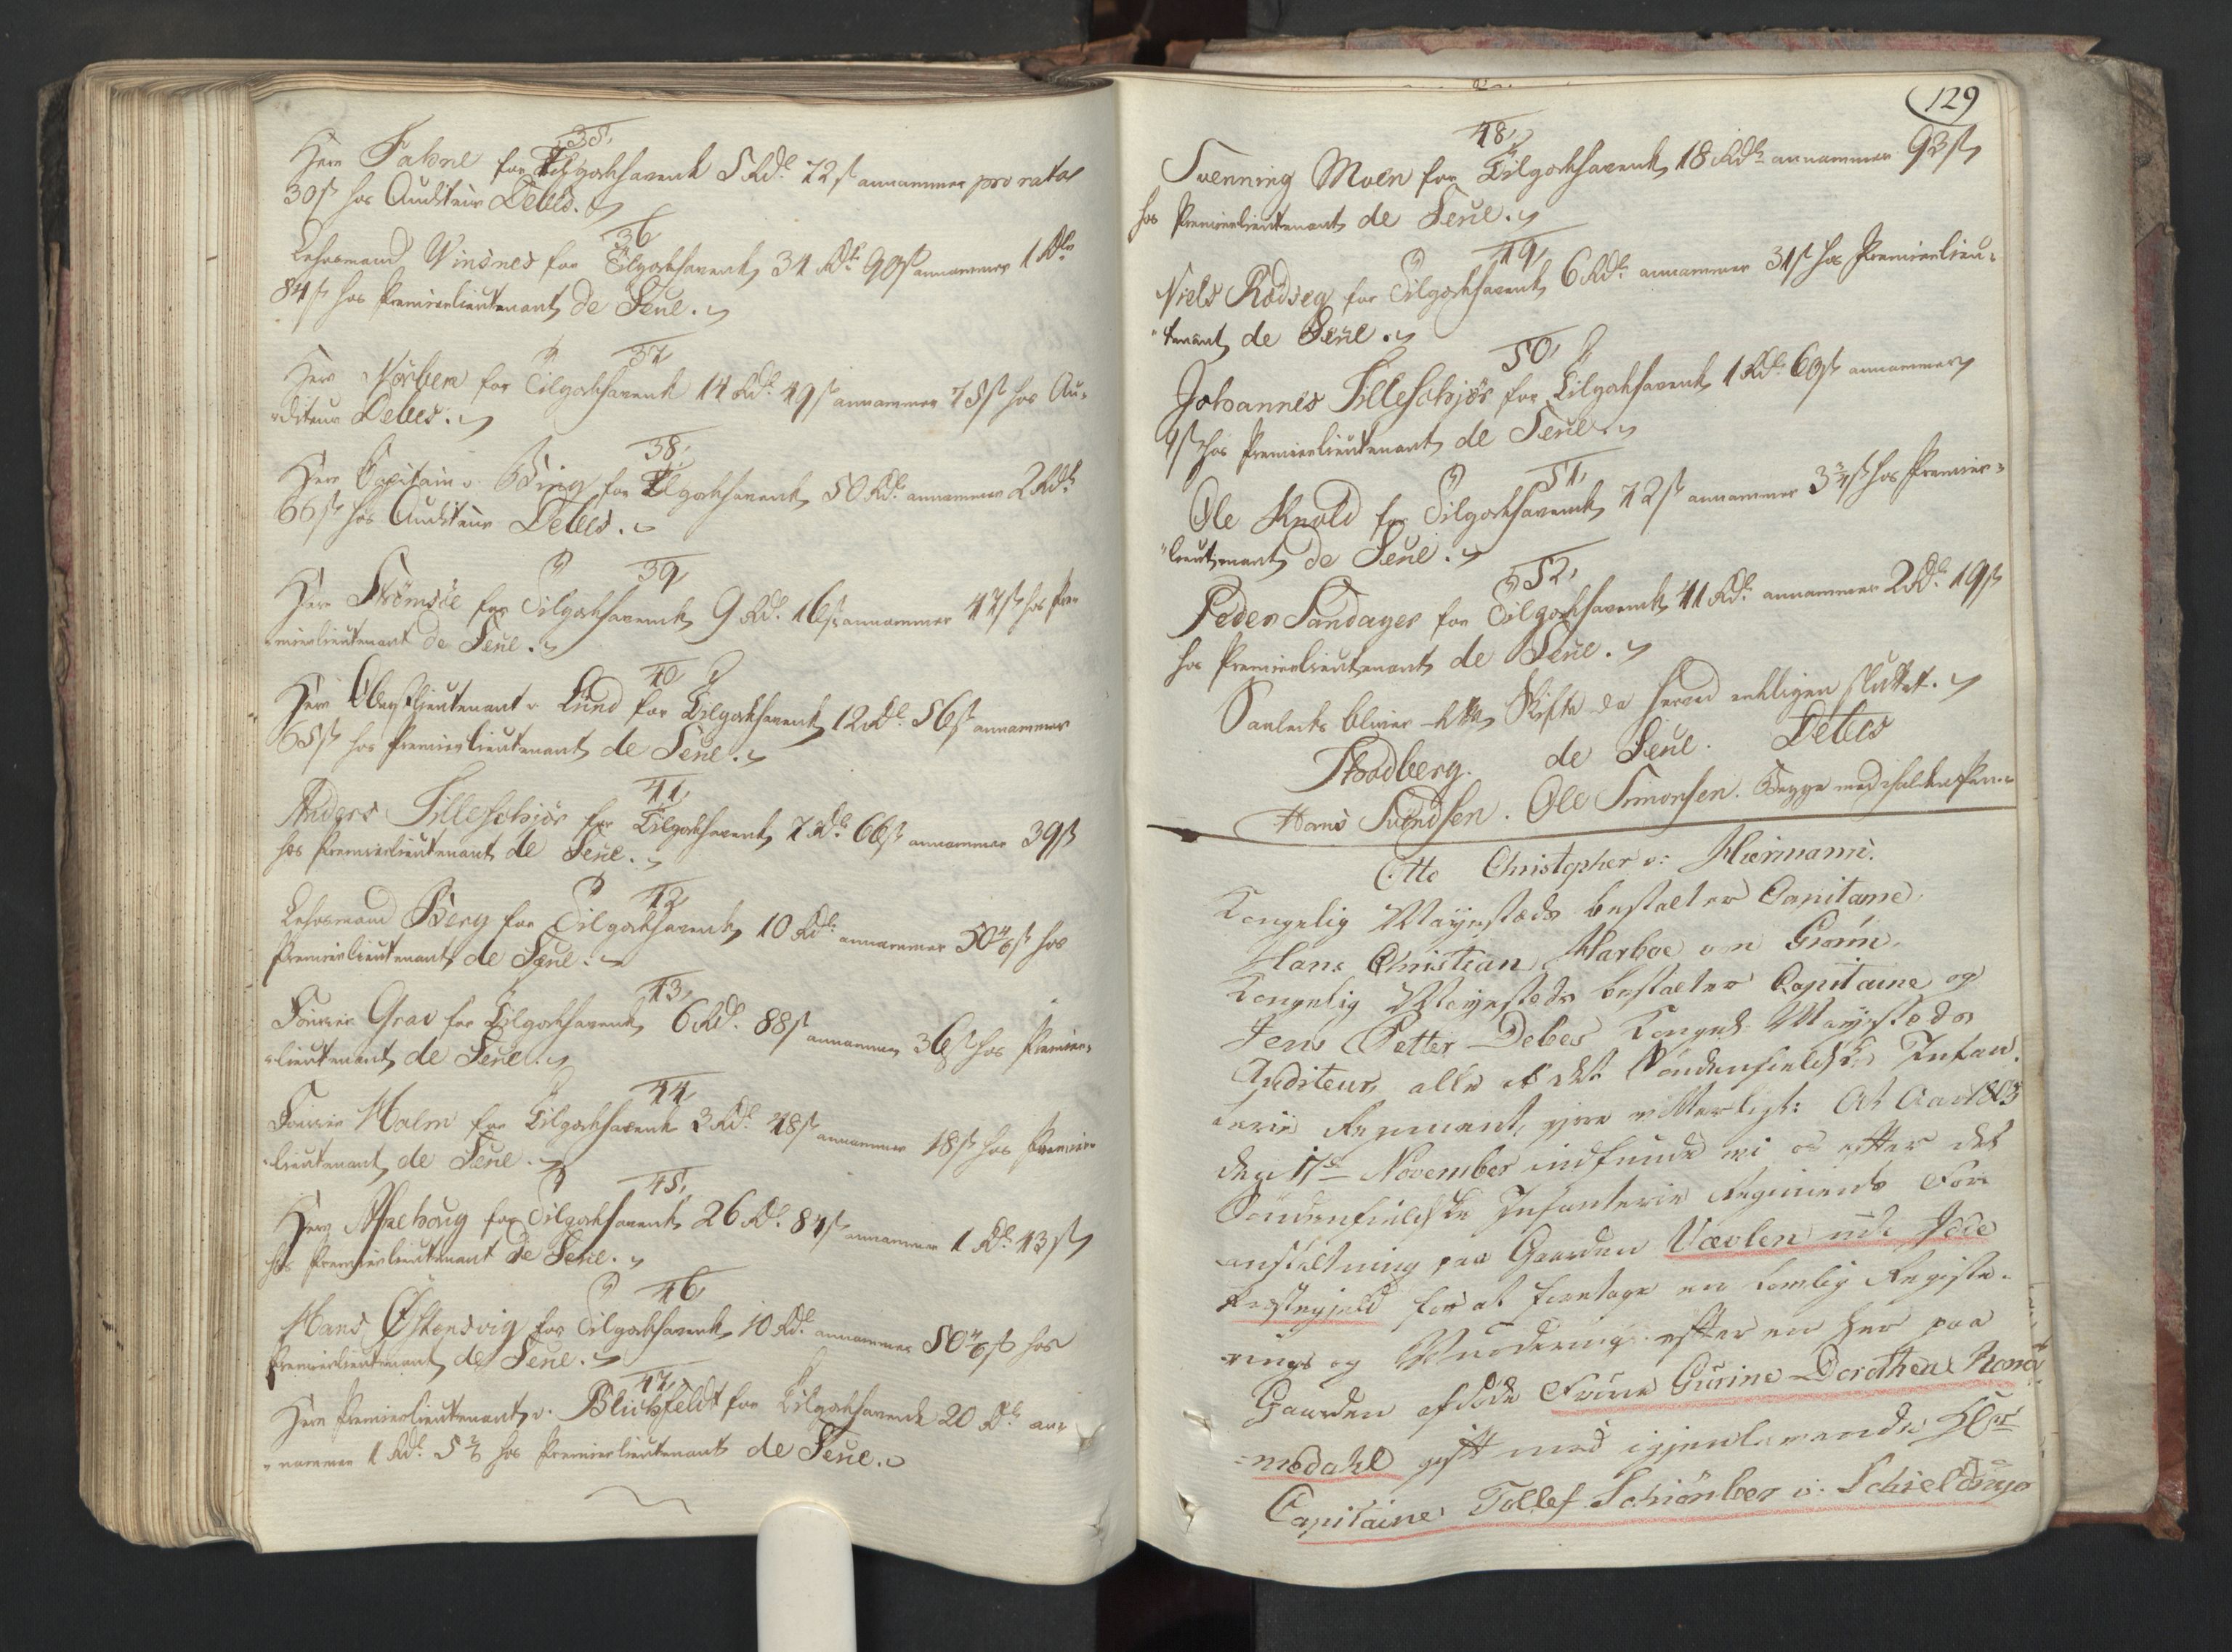 35,
Herr Fabne for Tilgodehavende 5 Rd. 72 s annammer pro rata
30 s hos Auditeur Debes.
36
Lehnsmand Vinsnes for Tilgodehavende 34 Rd. 90 s annammer 1 Rd.
84 s hos Premierlieutenant de Seue.
37
Herr Nörbech for Tilgodehavende 14 Rd. 49 s annammer 75 s hos Au-
diteur Debes.
38,
Herr Capitain v. Bing for Tilgodehavende 50 Rd. annammer 2 Rd.
66 s hos Auditeur Debes.
39,
Herr Strömsöe for Tilgodehavende 9 Rd. 16 s annammer 47 s hos Pre-
mierlieutenant de Seue.
40
Herr Oberstlieutenant v. Lund for Tilgodehavende 12 Rd. 56 s annammer
65 s hos Premierlieutenant de Seue.
41,
Anders Filleschjör for Tilgodehavende 7 Rd. 66 s annammer 39 s
hos Premierlieutenant de Seue.
42,
Lehnsmand Berg for Tilgodehavende 10 Rd. annammer 50 4/6 s hos
Premierlieutenant de Seue.
43,
Fourier Grav for Tilgodehavende 6 Rd. 88 s annammer 36 s hos Premier-
lieutenant de Seue.
44,
Fourier Malm for Tilgodehavende 3 Rd. 48 s annammer 18 s hos Premier-
lieutenant de Seue.
45,
Herr for Tilgodehavende 26 Rd. 84 s annammer 1 Rd. 43 s
hos Premierlieutenant de Seue.
46,
Hans Östensvig for Tilgodehavende 10 Rd. annammer 50 4/6 s hos
Premierlieutenant de Seue.
47,
Herr Premierlieutenant v. Blichfeldt for Tilgodehavende 20 Rd. an-
nammer 1 Rd. 5 2/6 hos Premierlieutenant de Seue.
129
48,
Svenning Moen for Tilgodehavende 18 Rd. annammer 93 s
hos Premierlieutenant de Seue.
49,
Niels Rodseg for Tilgodehavende 6 Rd. annammer 31 s hos Premierlieu-
tenant de Seue.
50,
Johannes Filleschjör for Tilgodehavende 1 Rd. 60 s annammer
9 s hos Premierlieutenant de Seue.
51,
Ole Knold for Tilgodehavende 72 s annammer 3 3/4 s hos Premier-
lieutenant de Seue.
52,
Peder Sandager for Tilgodehavende 41 Rd. annammer 2 Rd. 19 s
hos Premierlieutenant de Seue.
Saaledes bliver dette Skifte da herved endeligen sluttet.
Stodberg. de Seue. Debes
Hans Svendsen. Ole Simonsen. Begge med iholden Pen
Otto Christopher v: Huermann.
Kongelig Mayestæds bestalter Capitaine.
Hans Christian Harboe von Grøn.
Kongelig Mayestæds bestalter Capitaine og
Jens Petter Debes Kongel: Mayestæds
Auditeur, alle af det Söndenfieldske Infan-
terie Regiment, gjøre vitterligt: At Aar 1803
den 17de November indfandt vi os efter det
Söndenfieldske Infanterie Regiments For-
anstaltning paa Gaarden Vævlen udi Idde
Præstegjeld for at foretage en lovlig Registe-
rings og Vurdering efter en her paa
Gaarden afdøde Frue Gurine Dorothea Roms-
medahl gift med igjenlevende Hr
Capitaine Tollef Schiönboe v: Schieldrup